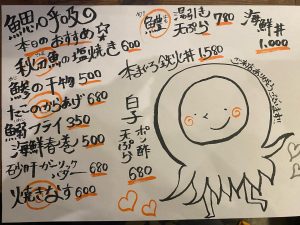 鰓呼吸の
本日のおすすめ
秋刀魚の塩焼き 600
鯵の干物 500
たこのからあげ 680
鰯フライ 350
海鮮春巻 500
砂肝ガーリックバター 680
焼きなす 600
鱧 湯引き 天ぷら 780
海鮮丼 1,000
本まぐろ鉄火丼 1,580
白子 ポン酢 天ぷら 680